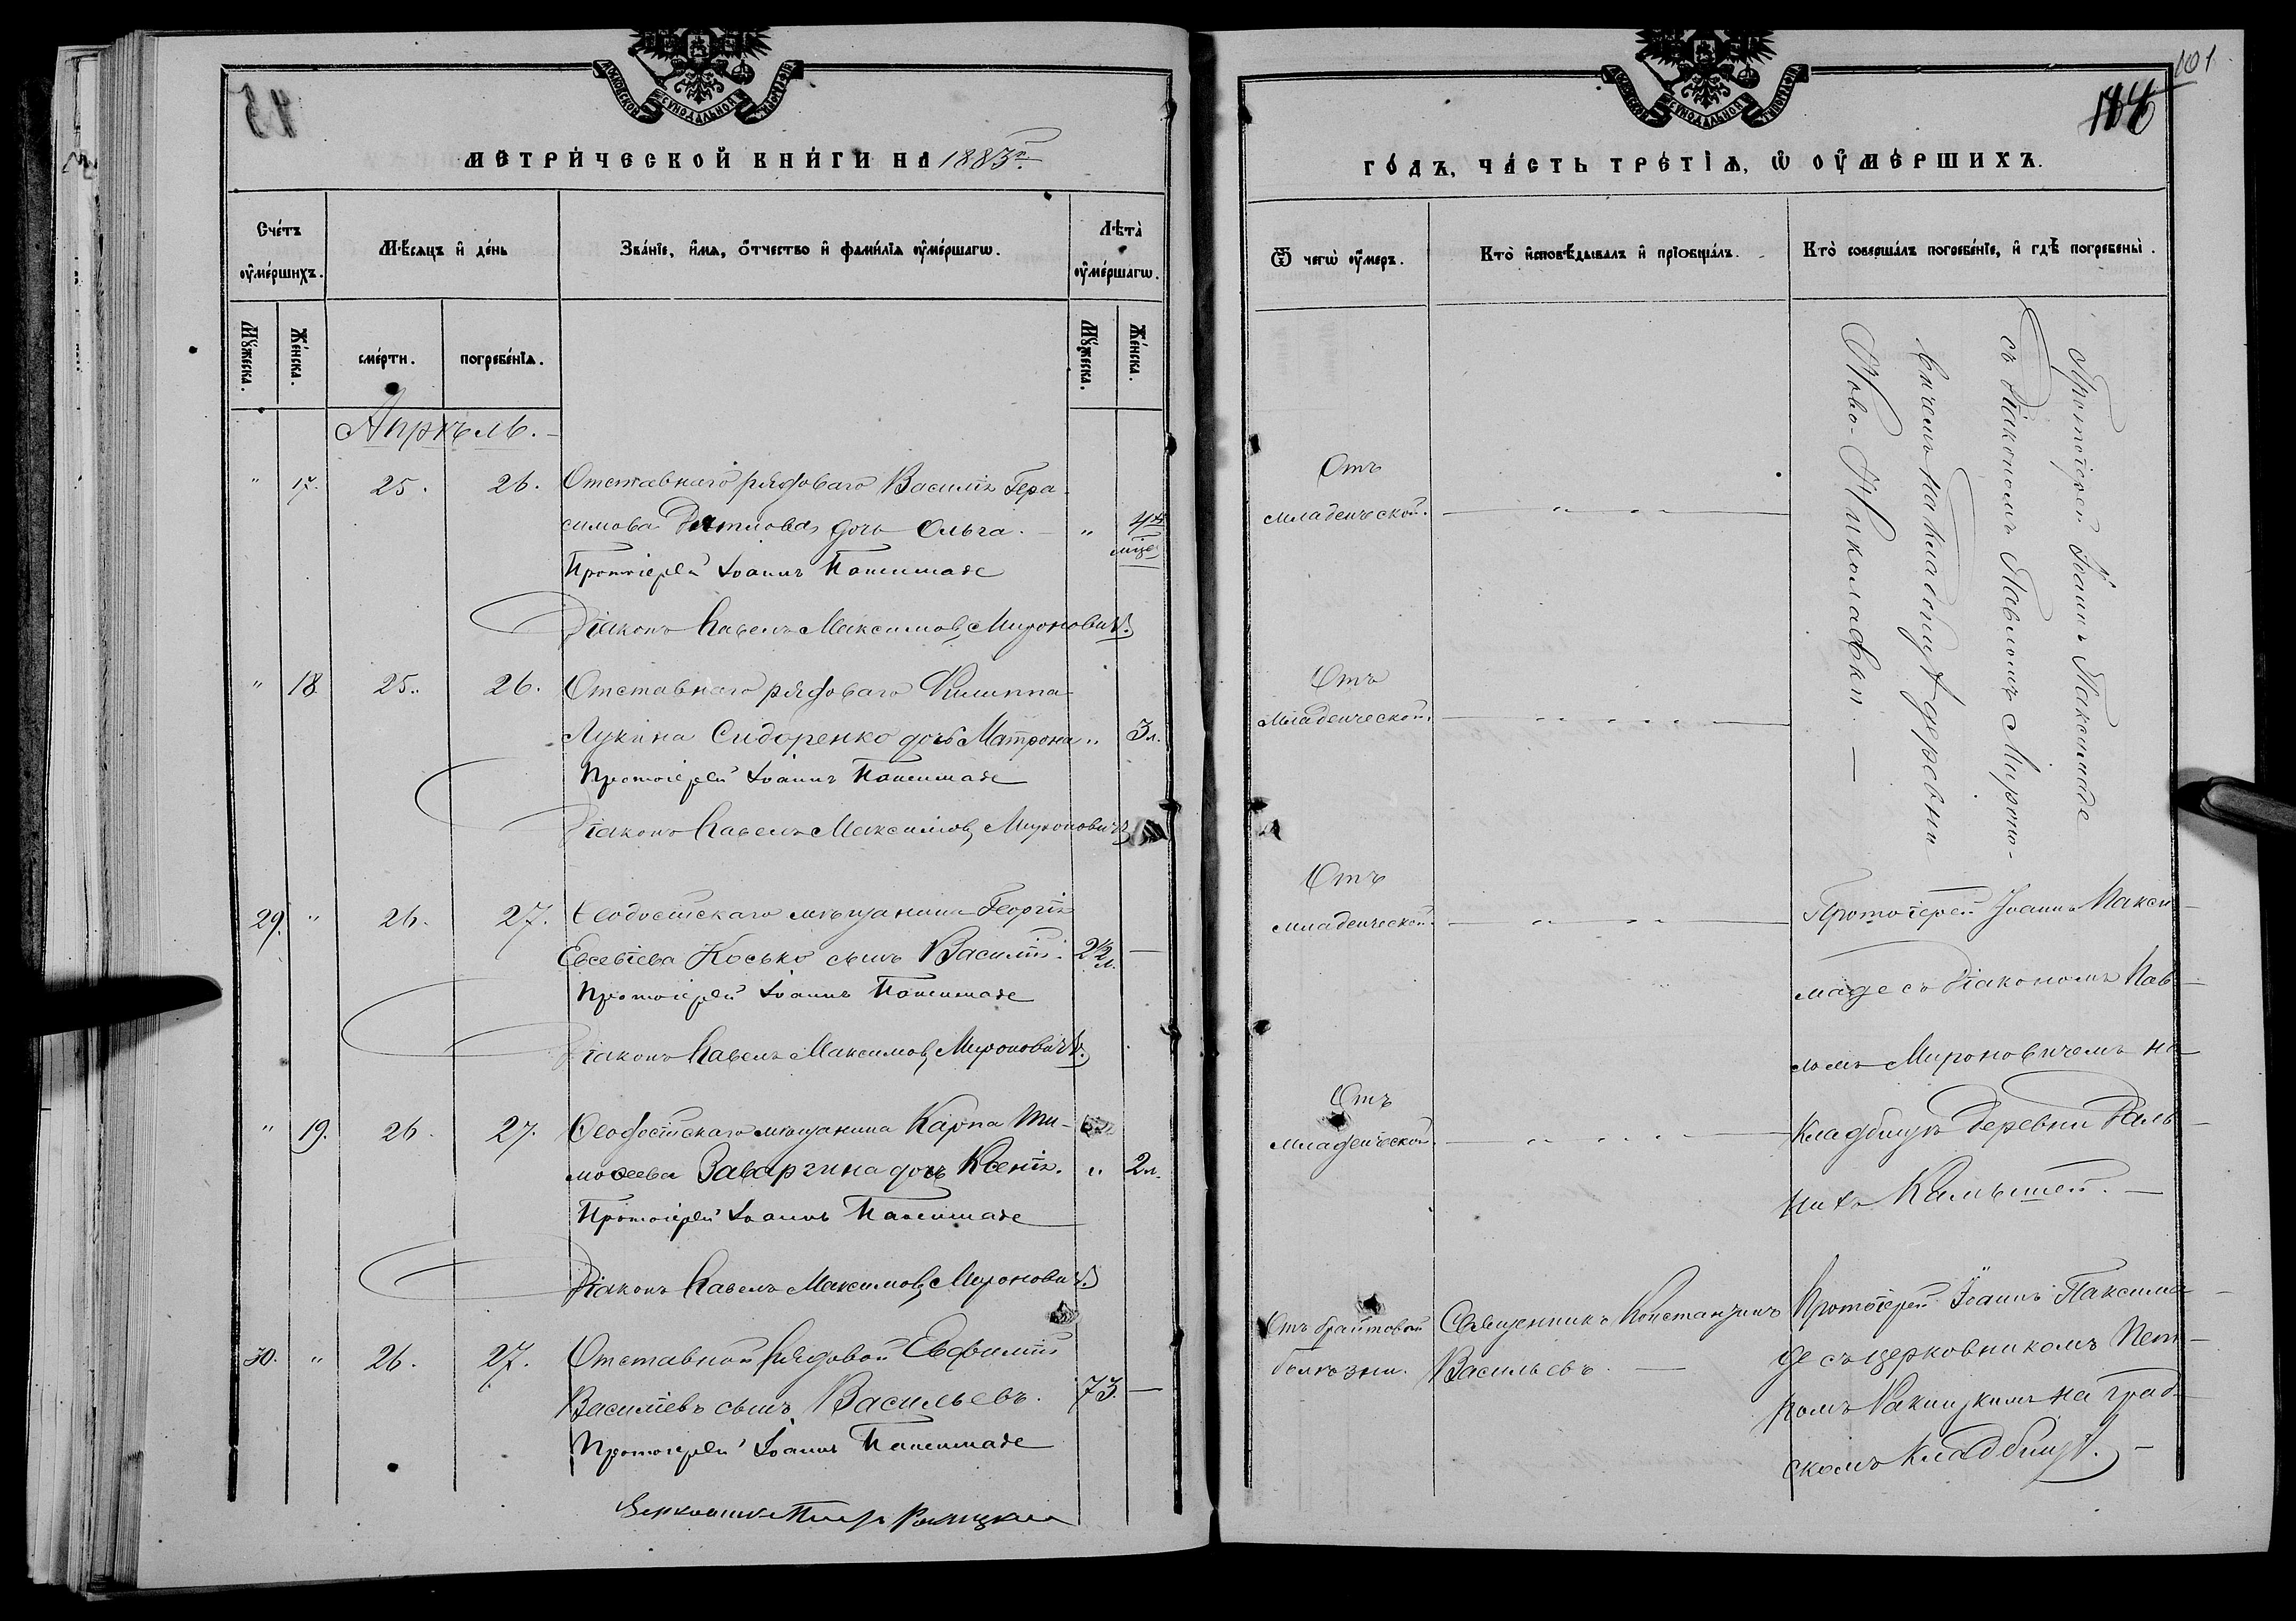 МОСКОВСКОЙ СѴНОДАЛЬНОЙ ТИПОГРАФІИ
МЕТРИЧЕСКОЙ КНИГИ НА 1883 г.
Счетъ умершихъ.
Мѣсяцъ и день
Званіе, имя, отчество и фамилія умершаго.
Лѣта умершаго.
Мужеска.
Женска.
смерти.
погребенія.
Мужеска.
Женска.
Апрѣль.
" 17. 25. 26. Отставнаго рядоваго Василія Гера-
симова дочь Ольга. "
Протоіерей Іоаннъ Паксимаде
Діаконъ Павелъ Максимов. Мироновичъ.
" 18 25. 26. Отставнаго рядоваго Филиппа
Лукина Сидоренко дочь Матрона " 3 л.
Протоіерей Іоаннъ Паксимаде
Діаконъ Павелъ Максимов. Мироновичъ
29. " 26. 27. Ѳеодосійскаго мѣщанина Георгія
Евсевіева Косько сынъ Василій. 2½ л. —
Протоіерей Іоаннъ Паксимаде
Діаконъ Павелъ Максимов. Мироновичъ.
" 19. 26. 27. Ѳеодосійскаго мѣщанина Карпа Ти-
моѳеева Заваргина дочь Ксенія. " 2 л.
Протоіерей Іоаннъ Паксимаде
Діаконъ Павелъ Максимов. Мироновичъ.
30. " 26. 27. Отставной рядовой Евфимій
Василіевъ сынъ Васильевъ. 73. —
Протоіерей Іоаннъ Паксимаде
Церковникъ Петръ
МОСКОВСКОЙ СѴНОДАЛЬНОЙ ТИПОГРАФІИ
101
ГОДЪ, ЧАСТЬ ТРЕТІЯ, Ѡ ОУМЕРШИХЪ.
Ѿ чего умеръ.
Кто исповѣдывалъ и пріобщалъ.
Кто совершалъ погребеніе, и гдѣ погребены.
Отъ
младенческой.
Отъ
младенческой.
Протоіерей Іоаннъ Паксимаде
съ Діакономъ Павломъ Мироно-
вичемъ на кладбищѣ деревни
Ново-Николаевки. —
Отъ
младенческой.
Протоіерей Іоаннъ Пакси-
маде съ Діакономъ Пав-
ломъ Мироновичемъ на
кладбищѣ деревни Даль-
нихъ Камышей. —
Отъ
младенческой.
Отъ брайтовой
болѣзни.
Священникъ Константинъ
Васильевъ. —
Протоіерей Іоаннъ Паксима-
де съ церковникомъ Пет-
ромъ на град-
скомъ кладбищѣ. —